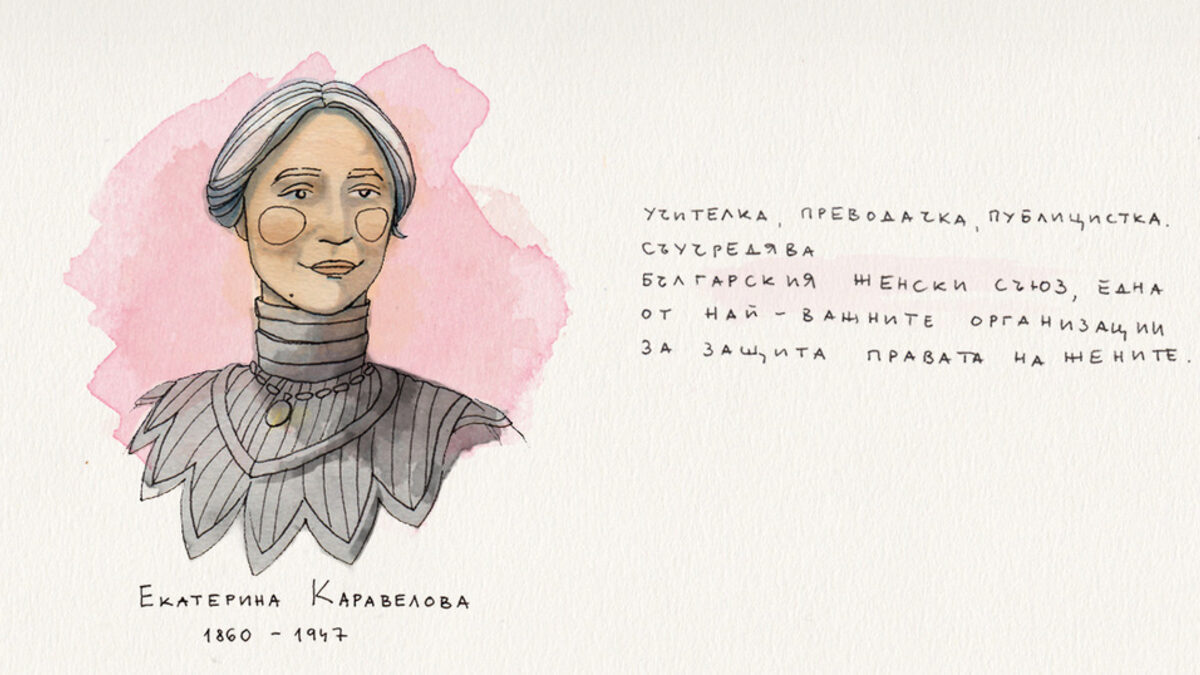 Екатерина Каравелова
1860 - 1947
учителка, преводачка, публицистка.
съучредява
българския женски съюз, една
от най - важните организации
за защита правата на жените.